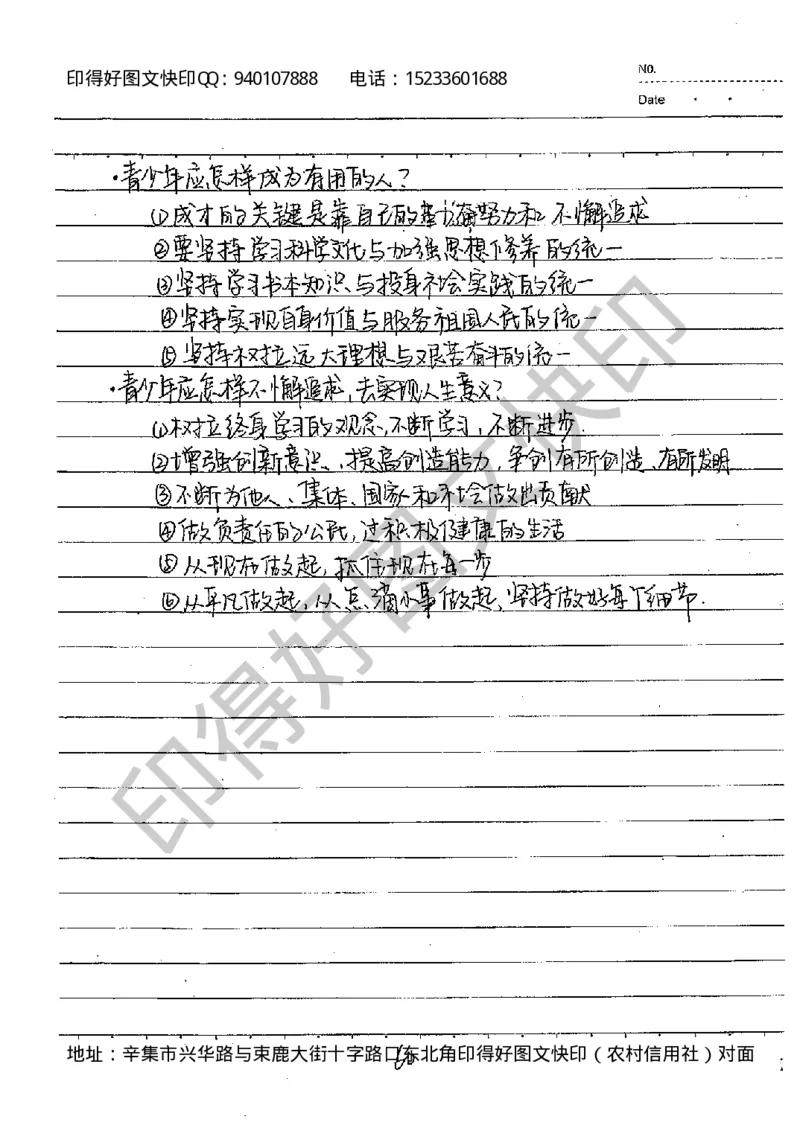 印得好图文快印QQ：940107888 电话：15233601688
NO.
Date
·青少年应怎样成为有用的人？
①成才的关键是靠自己的勤奋努力和不懈追求
②要坚持学习科学文化与加强思想修养的统一
③坚持学习书本知识与投身社会实践的统一
④坚持实现自身价值与服务祖国人民的统一
⑤坚持树立远大理想与艰苦奋斗的统一
·青少年应怎样不懈追求，去实现人生意义？
①树立终身学习的观念，不断学习，不断进步．
②增强创新意识、提高创造能力，争创有所创造、有所发明
③不断为他人、集体、国家和社会做出贡献
④做负责任的公民，过积极健康的生活
⑤从现在做起，抓住现在每一步
⑥从平凡做起，从点滴小事做起，坚持做好每个细节．
印得好图文快印
地址：辛集市兴华路与束鹿大街十字路口东北角印得好图文快印（农村信用社）对面